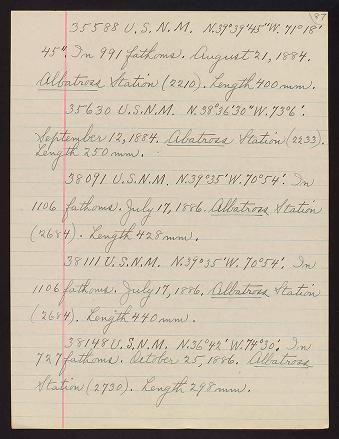 87
35588 U.S.N.M. N.39°39'45"W. 71°18'
45". In 991 fathoms. August 21, 1884.
Albatross Station (2210). Length 400 mm.
35630 U.S.N.M. N.38°36'30"W.73°6'.
September 12, 1884. Abatross Station (2233).
Length 250 mm.
38091 U.S.N.M. N.39°35'W.70°54'. In
1106 fathoms. July 17, 1886. Albatross Station
(2684). Length 428 mm.
38111 U.S.N.M. N.39°35'W.70°54'. In
1106 fathoms. July 17, 1886. Albatross Station
(2684). Length 440 mm.
38148 U.S.N.M. N.36°42'W.74°30'. In
727 fathoms. October 25, 1886. Albatross
Station (2730). Length 298 mm.